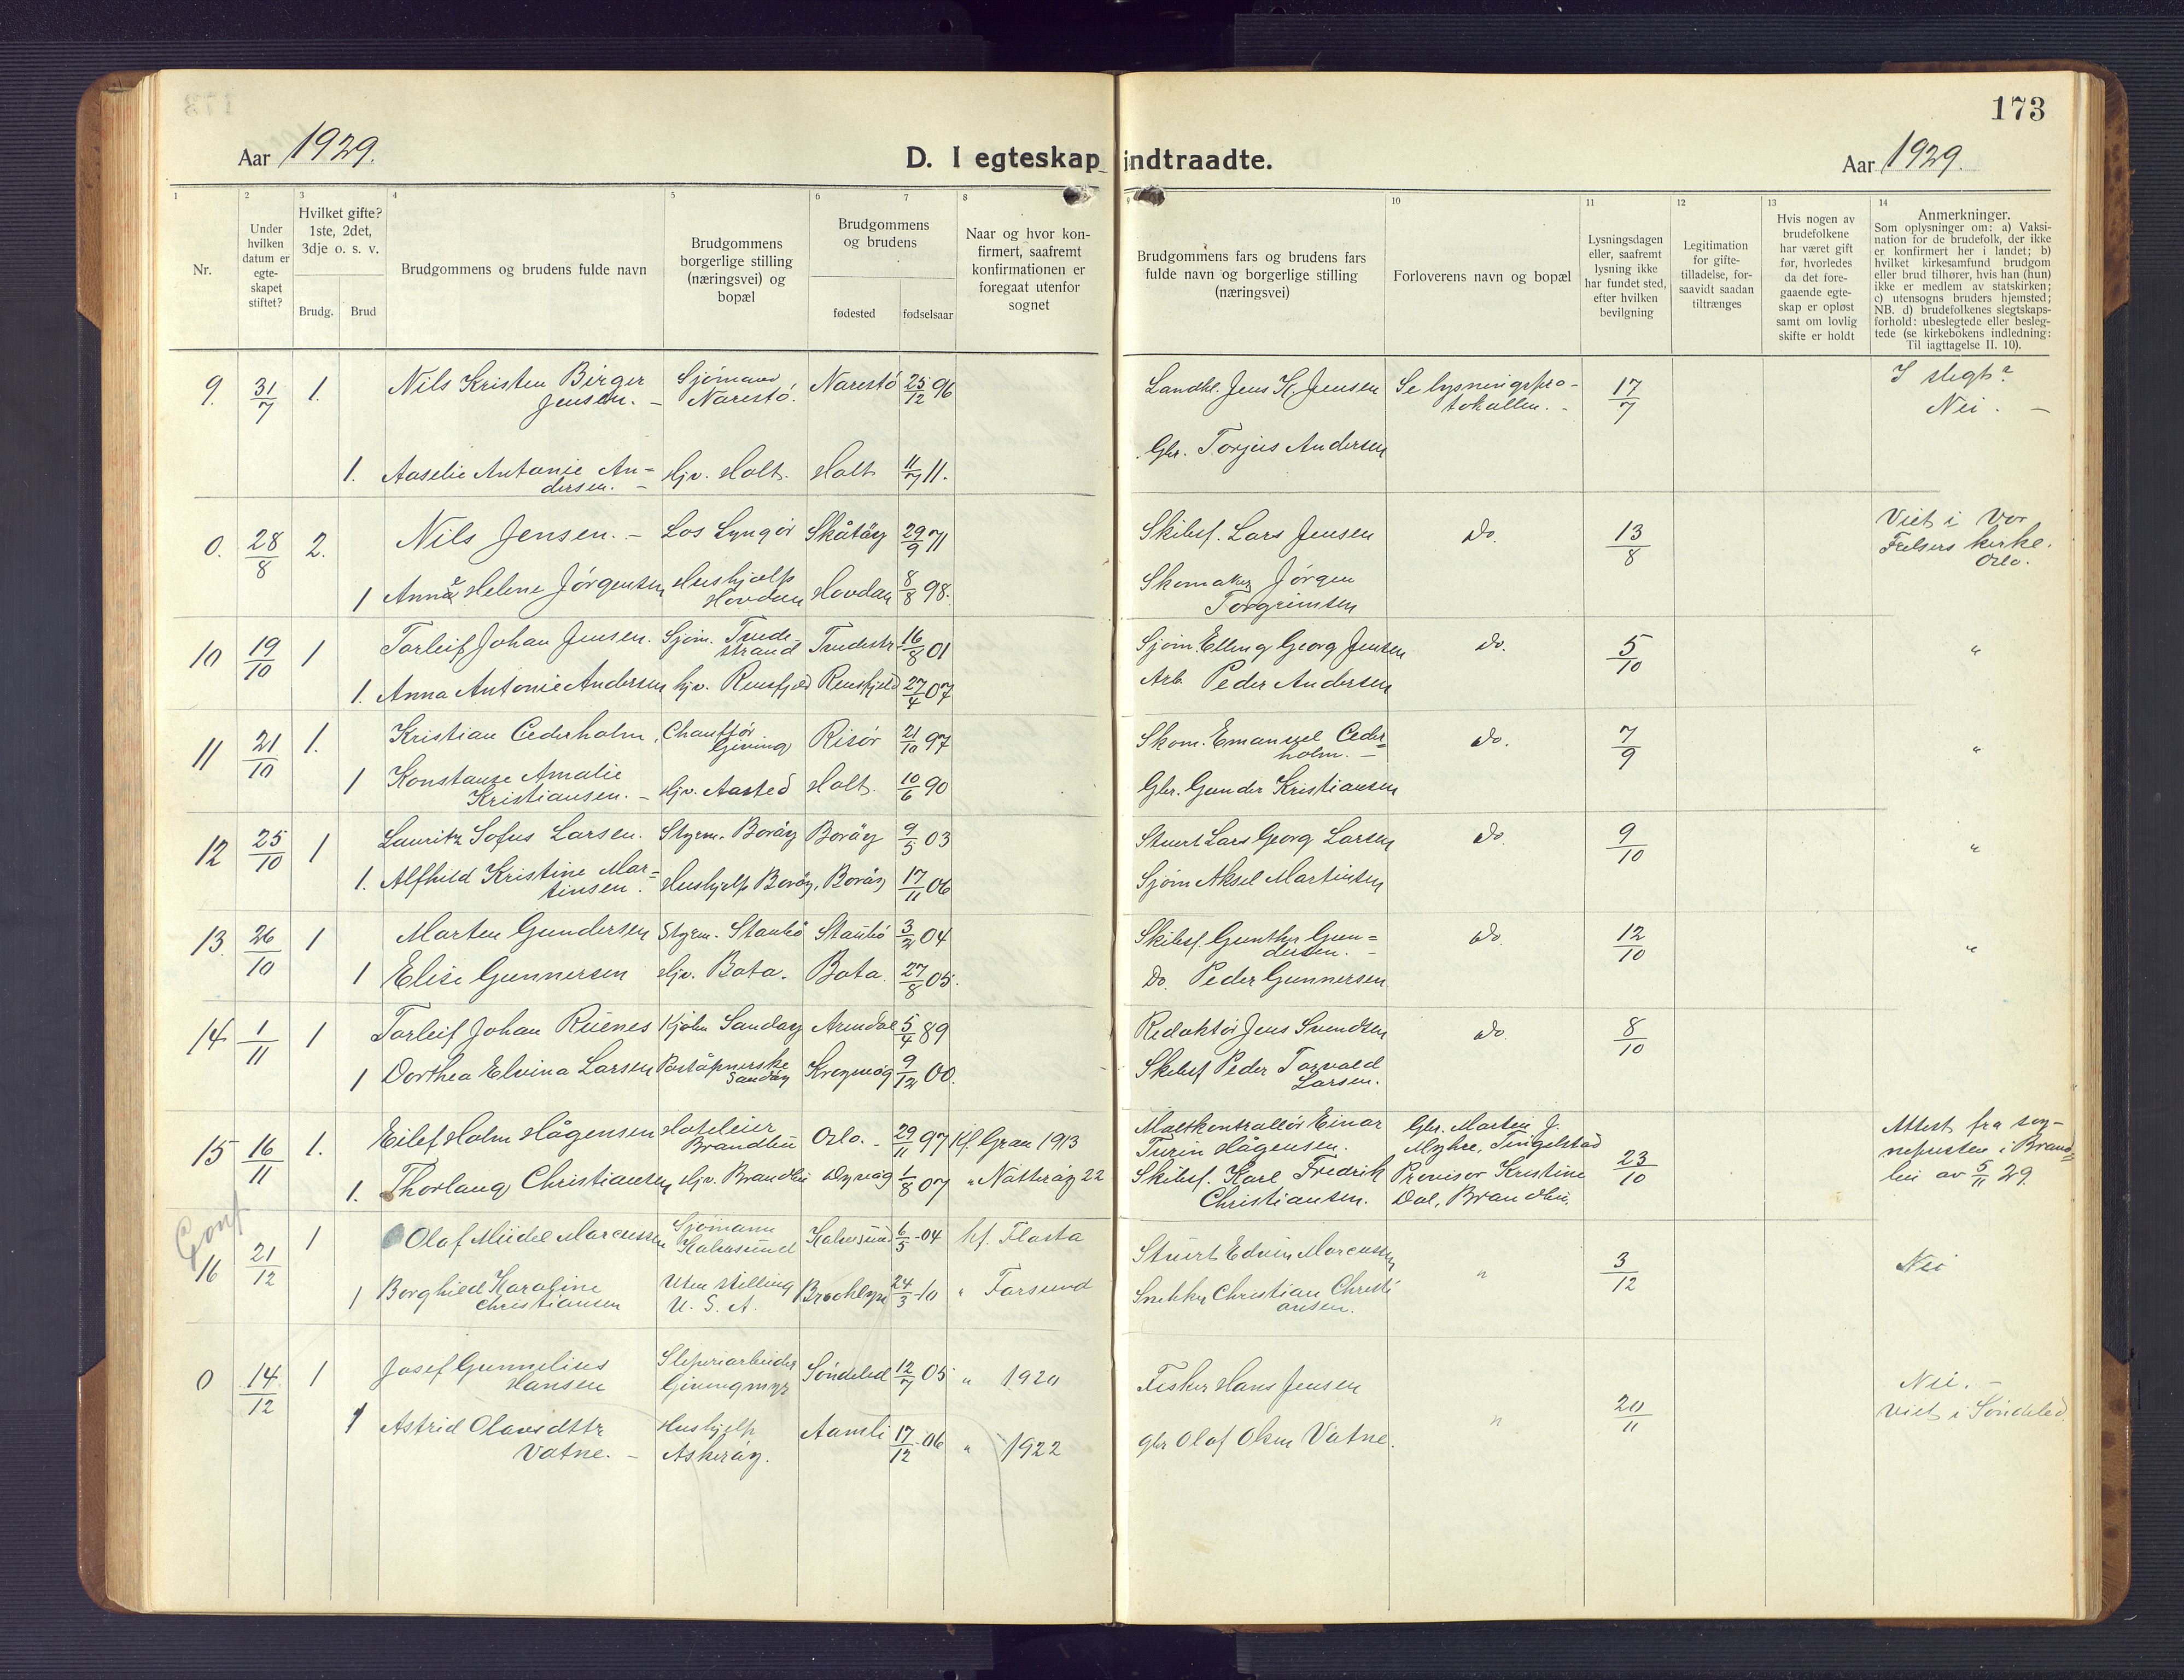 173
Aar 1929.
D. I egteskap indtraadte.
Aar 1929.
1 2 3 4 5 6 7 8 9 10 11 12 13 14
Nr.
Under hvilken datum er egte-skapet stiftet?
Hvilket gifte? 1ste, 2det, 3dje o. s. v.
Brudg. Brud
Brudgommens og brudens fulde navn
Brudgommens borgerlige stilling (næringsvei) og bopæl
Brudgommens og brudens
fødested fødselsaar
Naar og hvor kon-firmert, saafremt konfirmationen er foregaat utenfor sognet
Brudgommens fars og brudens fars fulde navn og borgerlige stilling (næringsvei)
Forloverens navn og bopæl
Lysningsdagen eller, saafremt lysning ikke har fundet sted, efter hvilken bevilgning
Legitimation for gifte-tilladelse, for-saavidt saadan tiltrænges
Hvis nogen av brudefolkene har været gift før, hvorledes da det fore-gaaende egte-skap er opløst samt om lovlig skifte er holdt
Anmerkninger.
Som oplysninger om: a) Vaksi-
nation for de brudefolk, der ikke
er konfirmert her i landet; b)
hvilket kirkesamfund brudgom
eller brud tilhører, hvis han (hun)
ikke er medlem av statskirken;
c) utensogns bruders hjemsted;
NB. d) brudefolkenes slegtskaps-
forhold: ubeslegtede eller besleg-
tede (se kirkebokens indledning:
Til iagttagelse II. 10).
9. 31/7 1. Nils Kristen Birger Jensen. - Sjømann Narestö. Narestö 25/12 96 Landhl. Jens K. Jensen Se lysningspro-tokollen. - 17/7 I slegt? Nei. -
1. Aaselie Antonie An=dersen. - Hjv. Holt. Holt 11/7 11. Gbr. Torjus Andersen
0. 28/8 2. Nils Jensen. - Los Lyngör Skåtöy 29/9 71 Skibsf. Lars Jensen Do. 13/8 Viet i Vor Frelsers kirke. Oslo.
1 Anna Helene Jörgensen Hushjælp Hovdan Hovdan 8/8 98. Skomaker Jörgen Torgrimsen
10 19/10 1 Torleif Johan Jensen. Sjöm. Tvede-strand Tvedestr. 16/8 01 Sjöm. Elling Georg Jensen Do. 5/10 "
1. Anna Antonie Andersen hjv. Rensfjeld Rensfjeld 27/4 07 Arb. Peder Andersen
11 21/10 1. Kristian Cederholm, Chaufför Giving Risör 21/10 97 Skom. Emanuel Ceder=holm. - Do. 7/9 "
1 Konstanse Amalie Kristiansen. - Hjv. Aasted Holt. 10/6 90 Gbr. Gunder Kristiansen
12 25/10 1 Lauritz Sofus Larsen. Styrm. Boröy Boröy 9/5 03 Stuert Lars Georg Larsen Do. 9/10 "
1. Alfhild Kristine Mar=tinsen. Hushjelp Boröy, Boröy 17/11 06 Sjöm Aksel Martinsen
13. 26/10 1 Marten Gundersen Styrm. Staubö Staubö 3/2 04 Skibsf. Gunther Gun=dersen. - Do. 12/10 "
1 Elise Gunnersen Hjv. Bota. Bota. 27/8 05. Do. Peder Gunnersen
14 1/11 1 Torleif Johan Ruenes Kjöbm Sandöy Arendal 5/4 89 Redaktör Jens Svendsen Do. 8/10
1 Dorthea Elvina Larsen Poståpnerske Sandöy 9/12 00. Skibsf Peder Torvald Larsen.
15 16/11 1. Eilef Holm Hågensen Hoteleier Brandbu Oslo. - 29/11 97 Kf. Gran 1913 Maltkontrollör Einar Hågensen. Gbr. Marten J. Myhre, Tingelstad 23/10 Attest fra sog-nepresten i Brand=bu av 5/11 29
1. Thorlaug Christiansen Hjv. Brandbu Dypvåg 1/8 07 " Nötteröy 22 Skibsf. Karl Fredrik Christiansen. Provisor Kristine Dal, Brandbu.
16 21/12 1 Olaf Mickel Marcussen Sjømann Kalvesund Kalvesund 6/5-04 kf. Flosta Stuert Edvin Marcussen " 3/12 Nei
1 Borghild Karoline Christiansen Uten stilling U. S. A. Brooklyn 24/3-10 " Farsund Snekker Christian Christiansen.
0 14/12 1 Josef Gunnelius Hansen Sliperiarbeider Givingmyr Söndeled 12/7 05 " 1920 Fisker Hans Jensen " 20/11 Nei. - Viet i Söndeled.
1 Astrid Olavsdttr Vatne. - Hushjelp Askeröy. Aamli 17/12-06 " 1922 gbr Olaf Olsen Vatne.